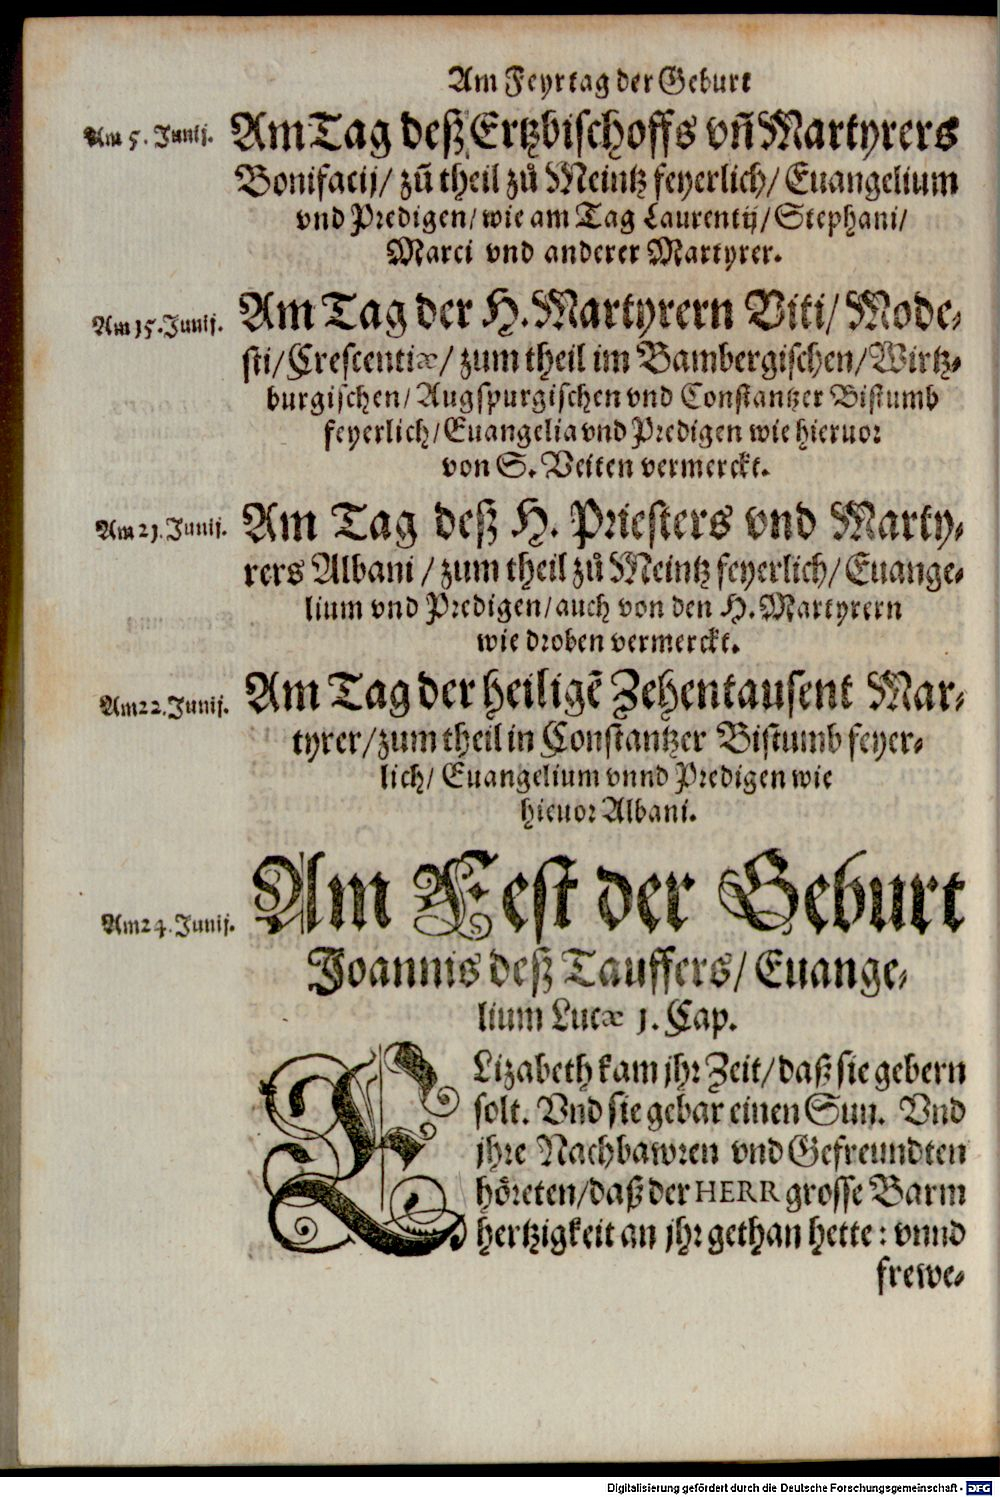 Am Feyrtag der Geburt
Am 5. Junij.
Am Tag deß Ertzbischoffs vñ Martyrers
Bonifacij/ zů theil zů Meintz feyerlich/ Euangelium
vnd Predigen/ wie am Tag Laurentij/ Stephani/
Marci vnd anderer Martyrer.
Am 15. Junij.
Am Tag der H. Martyrern Viti/ Mode-
sti/ Crescentiæ/ zum theil im Bambergischen/ Wirtz-
burgischen/ Augspurgischen vnd Constantzer Bistumb
feyerlich/ Euangelia vnd Predigen wie hieruor
von S. Veiten vermerckt.
Am 21. Junij.
Am Tag deß H. Priesters vnd Marty-
rers Albani / zum theil zů Meintz feyerlich/ Euange-
lium vnd Predigen/ auch von den H. Martyrern
wie droben vermerckt.
Am 22. Junij.
Am Tag der heiligẽ Zehentausent Mar-
tyrer/ zum theil in Constantzer Bistumb feyer-
lich/ Euangelium vnnd Predigen wie
hieuor Albani.
Am 24. Junij.
Am Fest der Geburt
Joannis deß Tauffers/ Euange-
lium Lucæ 1. Cap.
ELizabeth kam jhr Zeit/ daß sie gebern
solt. Vnd sie gebar einen Sun. Vnd
jhre Nachbawren vnd Gefreundten
höreten/ daß der HERR grosse Barm
hertzigkeit an jhr gethan hette: vnnd
frewe-
Digitalisierung gefördert durch die Deutsche Forschungsgemeinschaft - DFG